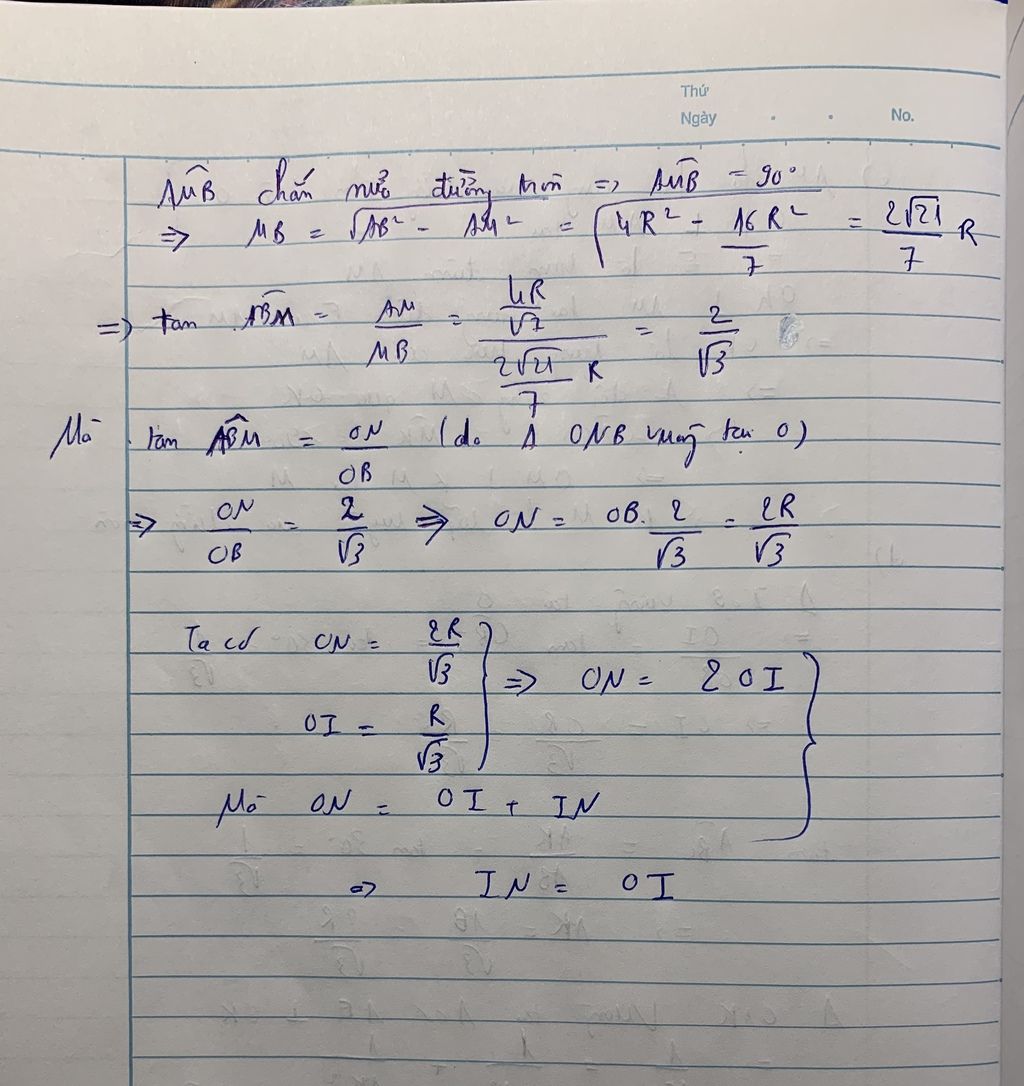 Thứ
Ngày . . No.
$\widehat{AMB}$ chắn nửa đường tròn => $\widehat{AMB}$ = 90°
=> MB = $\sqrt{AB^2 - AM^2}$ = $\sqrt{4R^2 - \frac{16R^2}{7}}$ = $\frac{2\sqrt{21}}{7}$ R
=> tan $\widehat{ABM}$ = $\frac{AM}{MB}$ = $\frac{\frac{4R}{\sqrt{7}}}{\frac{2\sqrt{21}}{7} R}$ = $\frac{2}{\sqrt{3}}$
Mà tan $\widehat{ABM}$ = $\frac{ON}{OB}$ (do Δ ONB vuông tại O)
=> $\frac{ON}{OB}$ = $\frac{2}{\sqrt{3}}$ => ON = OB. $\frac{2}{\sqrt{3}}$ = $\frac{2R}{\sqrt{3}}$
Ta có ON = $\frac{2R}{\sqrt{3}}$
=> ON = 2 OI
OI = $\frac{R}{\sqrt{3}}$
Mà ON = OI + IN
=> IN = OI